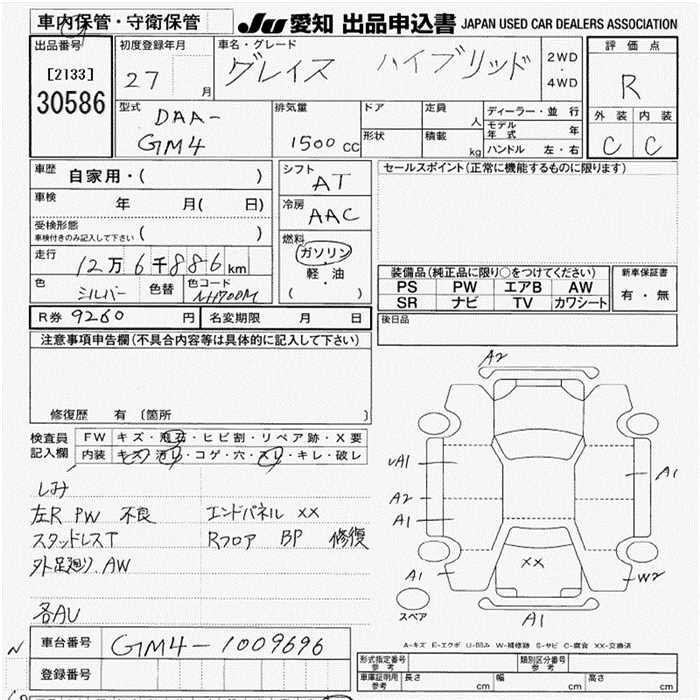 車内保管・守衛保管
JU 愛知 出品申込書 JAPAN USED CAR DEALERS ASSOCIATION
出品番号
[2133]
30586
初度登録年月
27 月
車名・グレード
グレイス ハイブリッド
2WD
・
4WD
評価点
R
外装 内装
C C
型式
DAA-
GM4
排気量
1500 cc
ドア
形状
定員
人
積載
kg
ディーラー・並行
モデル年式 年
ハンドル 左・右
車歴
自家用・( )
車検
年 月( 日)
受検形態
車検付きのみ記入して下さい ( )
走行
12万6千886km
色
シルバー
色替
色コード
NH700M
シフト
AT
冷房
AAC
燃料
ガソリン
・
軽・油
( )
R券 9260 円
名変期限 月 日
セールスポイント(正常に機能するものに限ります)
装備品(純正品に限り○をつけてください)
PS PW エアB AW
SR ナビ TV カワシート
新車保証書
有・無
後日品
注意事項申告欄(不具合内容等は具体的に記入して下さい)
修復歴 有 〔箇所 〕
検査員
記入欄
FW キズ・飛石・ヒビ割・リペア跡・X要
内装 キズ・汚レ・コゲ・穴・スレ・キレ・破レ
しみ
左R PW 不良 エンドパネル XX
スタッドレスT Rフロア BP 修復
外足廻り、AW
各AU
A2
UA1
A2
A1
A1
A1
XX
W2
A1
スペア
A-キズ E-エクボ U-凹み W-補修跡 S-サビ C-腐食 XX-交換済
N
車台番号 GM4-1009696
登録番号
形式指定番号
参考
類別区分番号
参考
車庫証明用
参考
長さ cm 幅 cm 高さ cm